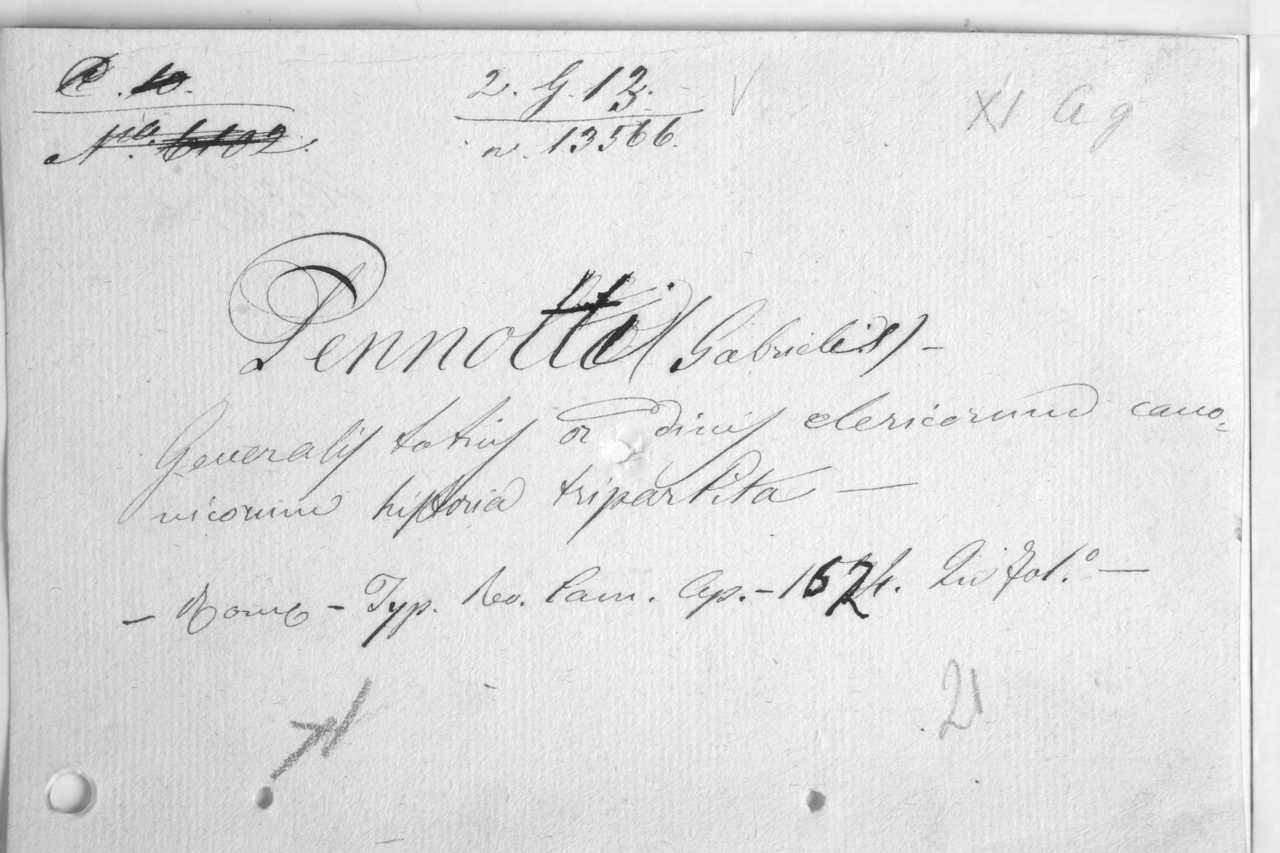 R. 10.
Nia. 6102.
2. G. 13.
n. 13566.
XI a g
Pennotti (Gabrielis) –
Generalis totius ordinis clericorum cano-
nicorum historia tripartita —
– Romæ – Typ. Rev. Cam. Ap. – 1624. In fol.º —
21